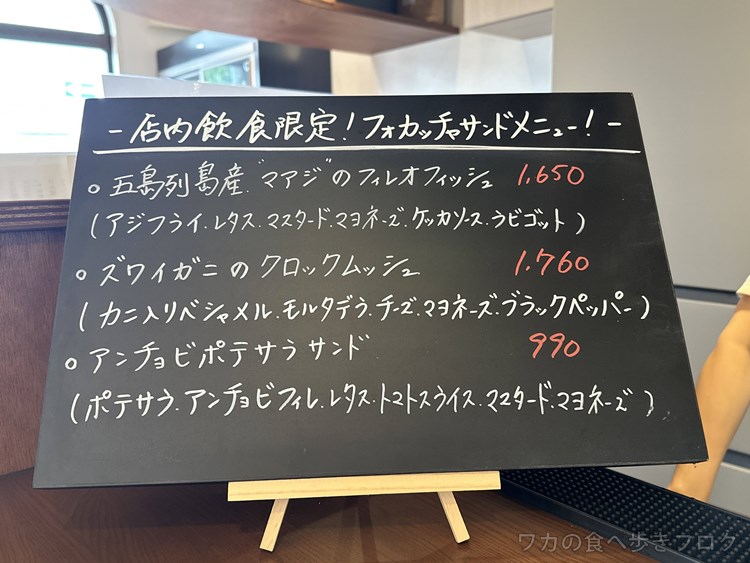 -店内飲食限定!フォカッチャサンドメニュー!-
○五島列島産"マアジ"のフィレオフィッシュ 1,650
(アジフライ.レタス.マスタード.マヨネーズ.ケッカソース.ラビゴット)
○ズワイガニのクロックムッシュ 1,760
(カニ入りベシャメル.モルタデラ.チーズ.マヨネーズ.ブラックペッパー)
○アンチョビポテサラサンド 990
(ポテサラ.アンチョビフィレ.レタス.トマトスライス.マスタード.マヨネーズ)
ワカの食べ歩きブログ